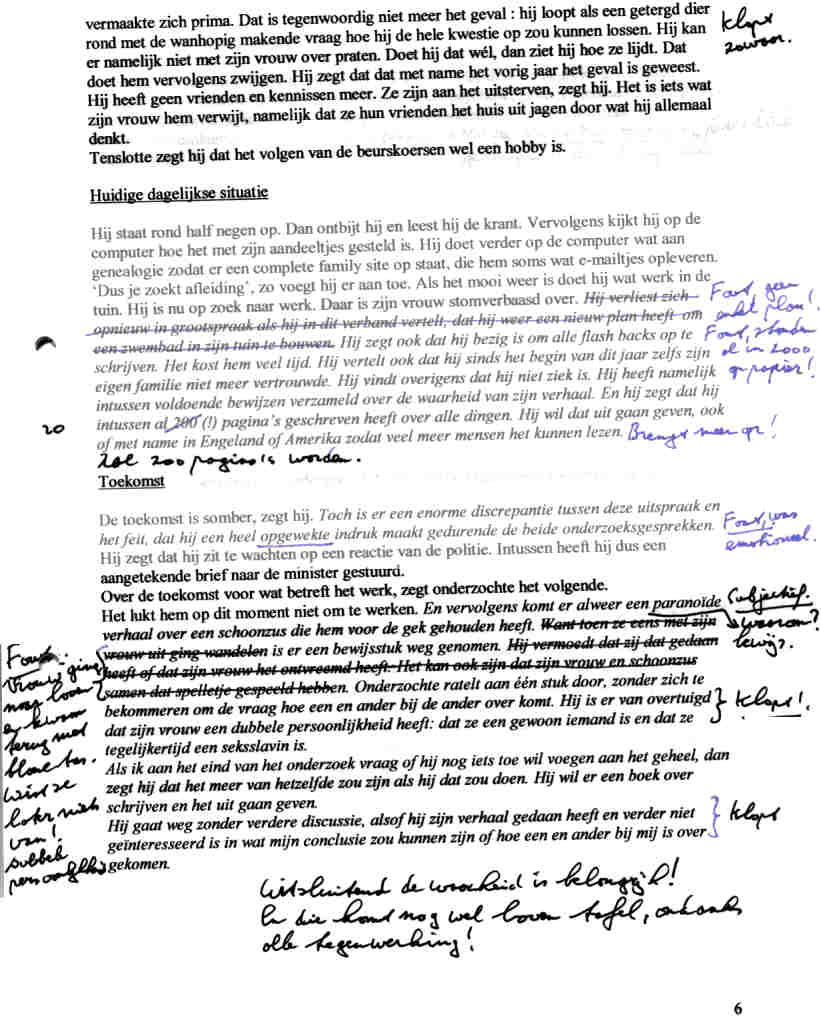 vermaakte zich prima. Dat is tegenwoordig niet meer het geval : hij loopt als een getergd dier
rond met de wanhopig makende vraag hoe hij de hele kwestie op zou kunnen lossen. Hij kan
er namelijk niet met zijn vrouw over praten. Doet hij dat wél, dan ziet hij hoe ze lijdt. Dat
doet hem vervolgens zwijgen. Hij zegt dat dat met name het vorig jaar het geval is geweest.
Hij heeft geen vrienden en kennissen meer. Ze zijn aan het uitsterven, zegt hij. Het is iets wat
zijn vrouw hem verwijt, namelijk dat ze hun vrienden het huis uit jagen door wat hij allemaal
denkt.
Tenslotte zegt hij dat het volgen van de beurskoersen wel een hobby is.
Klopt
zowaar.
Huidige dagelijkse situatie
Hij staat rond half negen op. Dan ontbijt hij en leest hij de krant. Vervolgens kijkt hij op de
computer hoe het met zijn aandeeltjes gesteld is. Hij doet verder op de computer wat aan
genealogie zodat er een complete family site op staat, die hem soms wat e-mailtjes opleveren.
‘Dus je zoekt afleiding’, zo voegt hij er aan toe. Als het mooi weer is doet hij wat werk in de
tuin. Hij is nu op zoek naar werk. Daar is zijn vrouw stomverbaasd over. Hij verliest zich
opnieuw in grootspraak als hij in dit verband vertelt, dat hij weer een nieuw plan heeft om
een zwembad in zijn tuin te bouwen. Hij zegt ook dat hij bezig is om alle flash backs op te
schrijven. Het kost hem veel tijd. Hij vertelt ook dat hij sinds het begin van dit jaar zelfs zijn
eigen familie niet meer vertrouwde. Hij vindt overigens dat hij niet ziek is. Hij heeft namelijk
intussen voldoende bewijzen verzameld over de waarheid van zijn verhaal. En hij zegt dat hij
intussen al 200 (!) pagina’s geschreven heeft over alle dingen. Hij wil dat uit gaan geven, ook
of met name in Engeland of Amerika zodat veel meer mensen het kunnen lezen. Brengt meer op!
Fout, geen
enkel plan!
Fout, stonden
al in 2000
op papier!
20
Zal 200 pagina's worden.
Toekomst
De toekomst is somber, zegt hij. Toch is er een enorme discrepantie tussen deze uitspraak en
het feit, dat hij een heel opgewekte indruk maakt gedurende de beide onderzoeksgesprekken.
Hij zegt dat hij zit te wachten op een reactie van de politie. Intussen heeft hij dus een
aangetekende brief naar de minister gestuurd.
Over de toekomst voor wat betreft het werk, zegt onderzochte het volgende.
Het lukt hem op dit moment niet om te werken. En vervolgens komt er alweer een paranoïde
verhaal over een schoonzus die hem voor de gek gehouden heeft. Want toen ze eens met zijn
vrouw uit ging wandelen is er een bewijsstuk weg genomen. Hij vermoedt dat zij dat gedaan
heeft of dat zijn vrouw het ontvreemd heeft. Het kan ook zijn dat zijn vrouw en schoonzus
samen dat spelletje gespeeld hebben. Onderzochte ratelt aan één stuk door, zonder zich te
bekommeren om de vraag hoe een en ander bij de ander over komt. Hij is er van overtuigd
dat zijn vrouw een dubbele persoonlijkheid heeft: dat ze een gewoon iemand is en dat ze
tegelijkertijd een seksslavin is.
Als ik aan het eind van het onderzoek vraag of hij nog iets toe wil voegen aan het geheel, dan
zegt hij dat het meer van hetzelfde zou zijn als hij dat zou doen. Hij wil er een boek over
schrijven en het uit gaan geven.
Hij gaat weg zonder verdere discussie, alsof hij zijn verhaal gedaan heeft en verder niet
geïnteresseerd is in wat mijn conclusie zou kunnen zijn of hoe een en ander bij mij is over
gekomen.
Fout, was
emotioneel.
Subjectief.
waarom?
bewijs.
Klopt!
Klopt
Fout:
Vrouw ging
nog boven
kwam
terug met
Wist ze
niets
van!
Dubbele
persoonlijkh
Uitsluitend de waarheid is belangrijk!
En die komt nog wel boven tafel, ondanks
alle tegenwerking!
6